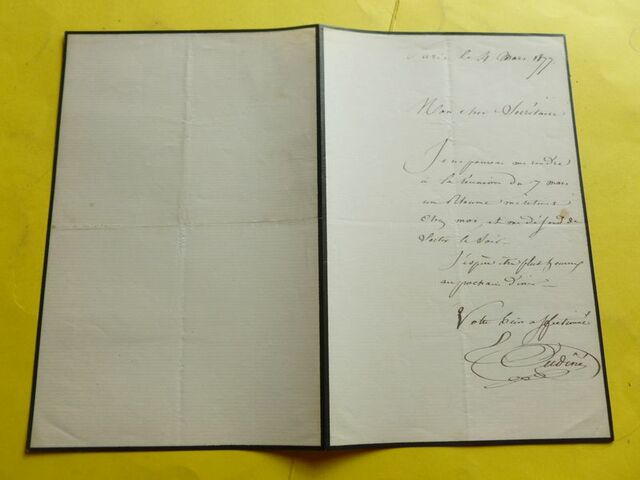 Paris le 4 Mars 1877
Mon cher Secrétaire
Je ne pourrai me rendre
à la réunion du 7 mars
un Rhume me retient
chez moi, et me défend de
sortir le soir.
J'espère être plus heureux
au prochain dîner
Votre bien affectionné
E Oudiné